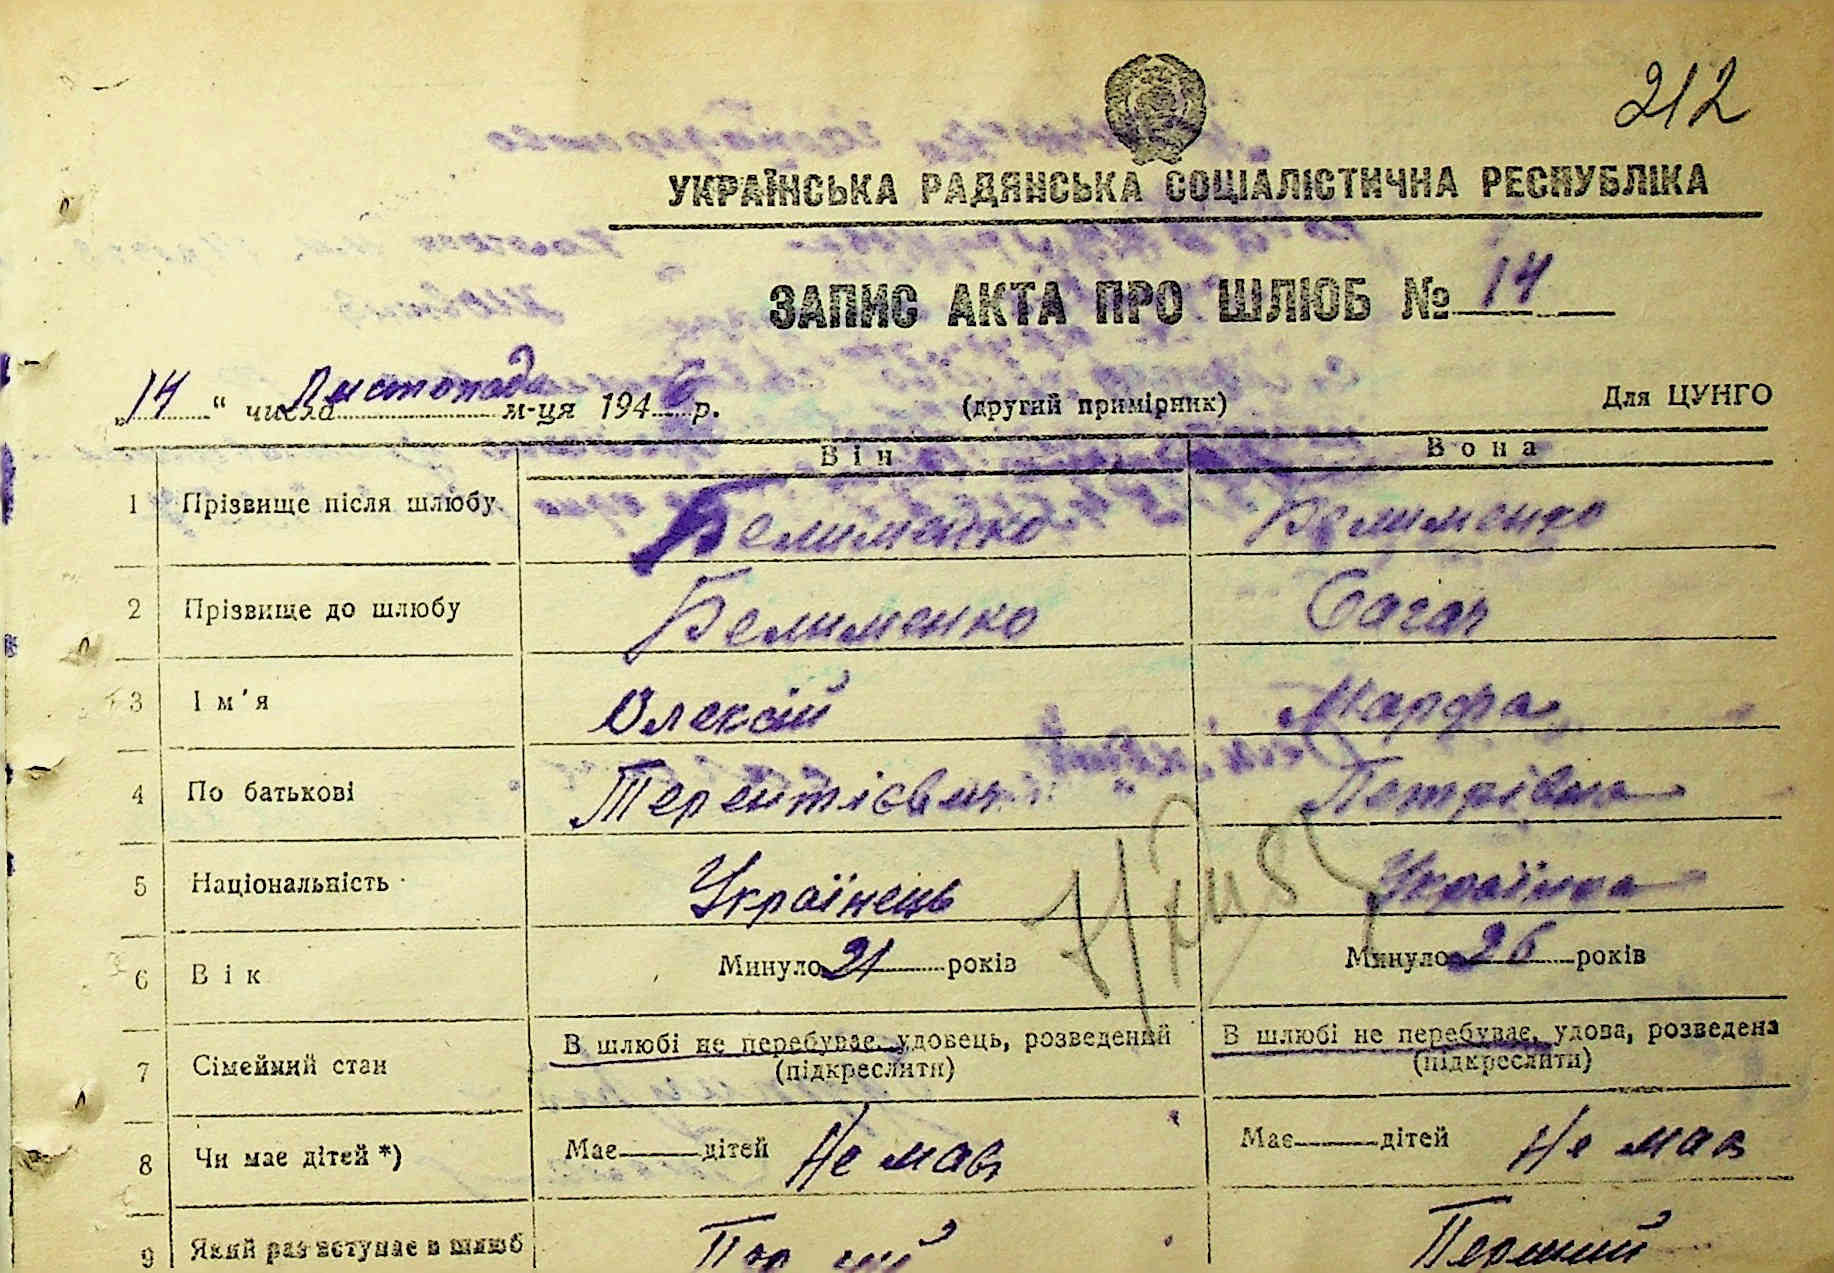 212
УКРАЇНСЬКА РАДЯНСЬКА СОЦІАЛІСТИЧНА РЕСПУБЛІКА
ЗАПИС АКТА ПРО ШЛЮБ № 14
„14“ числа Листопада м-ця 1946 р. (другий примірник) Для ЦУНГО
Він Вона
1 Прізвище після шлюбу Белименко Белименко
2 Прізвище до шлюбу Белименко Сагач
3 Ім'я Олексій Марфа
4 По батькові Терентієвич Петрівна
5 Національність Українець Українка
6 Вік Минуло 21 років Минуло 26 років
7 Сімейний стан В шлюбі не перебуває, удовець, розведений В шлюбі не перебуває, удова, розведена
(підкреслити) (підкреслити)
8 Чи має дітей *) Має дітей Не має Має дітей Не має
9 Який раз вступає в шлюб Перший Перший